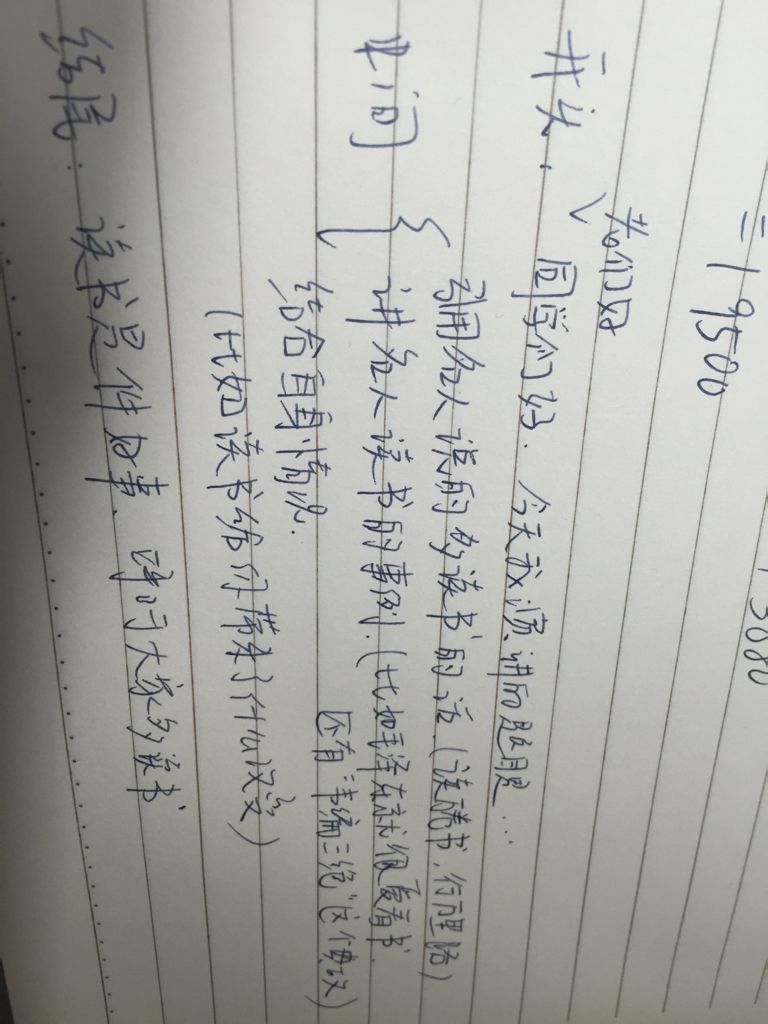 =19500
3080
老师们好
开头、同学们好. 今天我演讲的题目是...
中间 { 引用名人说的多读书的话.(读万卷书,行万里路)
讲名人读书的事例.(比如毛泽东就很爱看书.
还有"韦编三绝"这个典故)
结合自身情况.
(比如读书给你带来了什么改变)
结尾. 读书是件好事、呼吁大家多读书